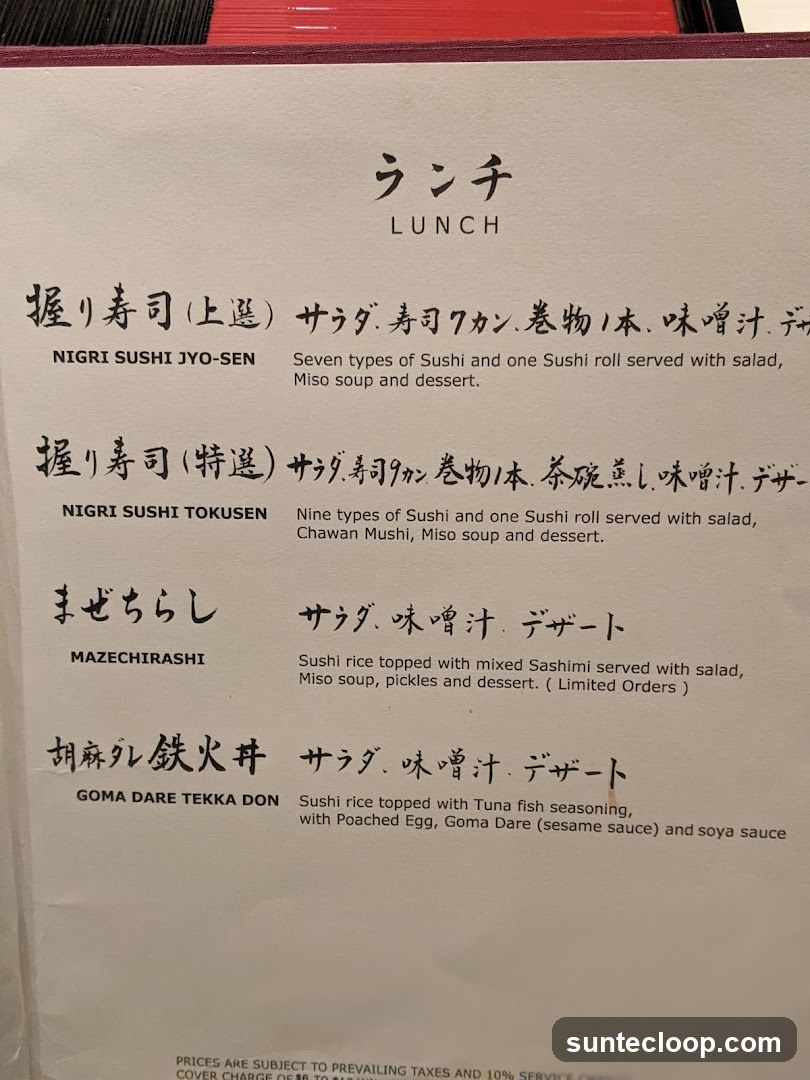 ランチ
LUNCH
握り寿司(上選) サラダ、寿司7カン、巻物1本、味噌汁、デザ
NIGRI SUSHI JYO-SEN Seven types of Sushi and one Sushi roll served with salad,
Miso soup and dessert.
握り寿司(特選) サラダ、寿司9カン、巻物1本、茶碗蒸し、味噌汁、デザー
NIGRI SUSHI TOKUSEN Nine types of Sushi and one Sushi roll served with salad,
Chawan Mushi, Miso soup and dessert.
まぜちらし サラダ、味噌汁、デザート
MAZECHIRASHI Sushi rice topped with mixed Sashimi served with salad,
Miso soup, pickles and dessert. ( Limited Orders )
胡麻ダレ鉄火丼 サラダ、味噌汁、デザート
GOMA DARE TEKKA DON Sushi rice topped with Tuna fish seasoning,
with Poached Egg, Goma Dare (sesame sauce) and soya sauce
PRICES ARE SUBJECT TO PREVAILING TAXES AND 10% SERVICE
COVER CHARGE OF $6 TO
suntecloop.com